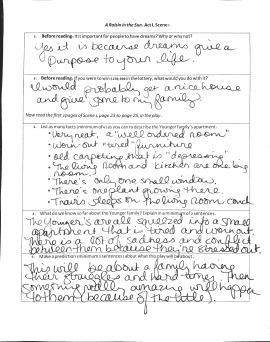 A Raisin in the Sun. Act I, Scene 1
1. Before reading: Is it important for people to have dreams? Why or why not?
Yes it is because dreams give a
purpose to your life.
2. Before reading: If you were to win in the lottery, what would you do with it?
I would probably get a nice house
and give some to my family.
Now read the first pages of Scene 1, page 23 to page 25, in the play.
3. List as many facts (minimum of) as you can to describe the Younger family's apartment.
• Very neat, a "well ordered room"
• Worn-out "tired" furniture
• Old carpeting that is "depressing"
• The living room and kitchen are one big
room
• There's only one small window
• There's one plant growing there.
• Travis sleeps on the living room couch
4. What do we know so far about the Younger family? Explain in a minimum of sentences.
The Younger's are all squeezed into a small
apartment that is tired and worn out.
There is a lot of sadness and conflict
between them because they're stressed out.
5. Make a prediction minimum sentences about what this play will be about.
This will be about a family having
their struggles and hard times. Then
something really amazing will happen
to them (because of the title).